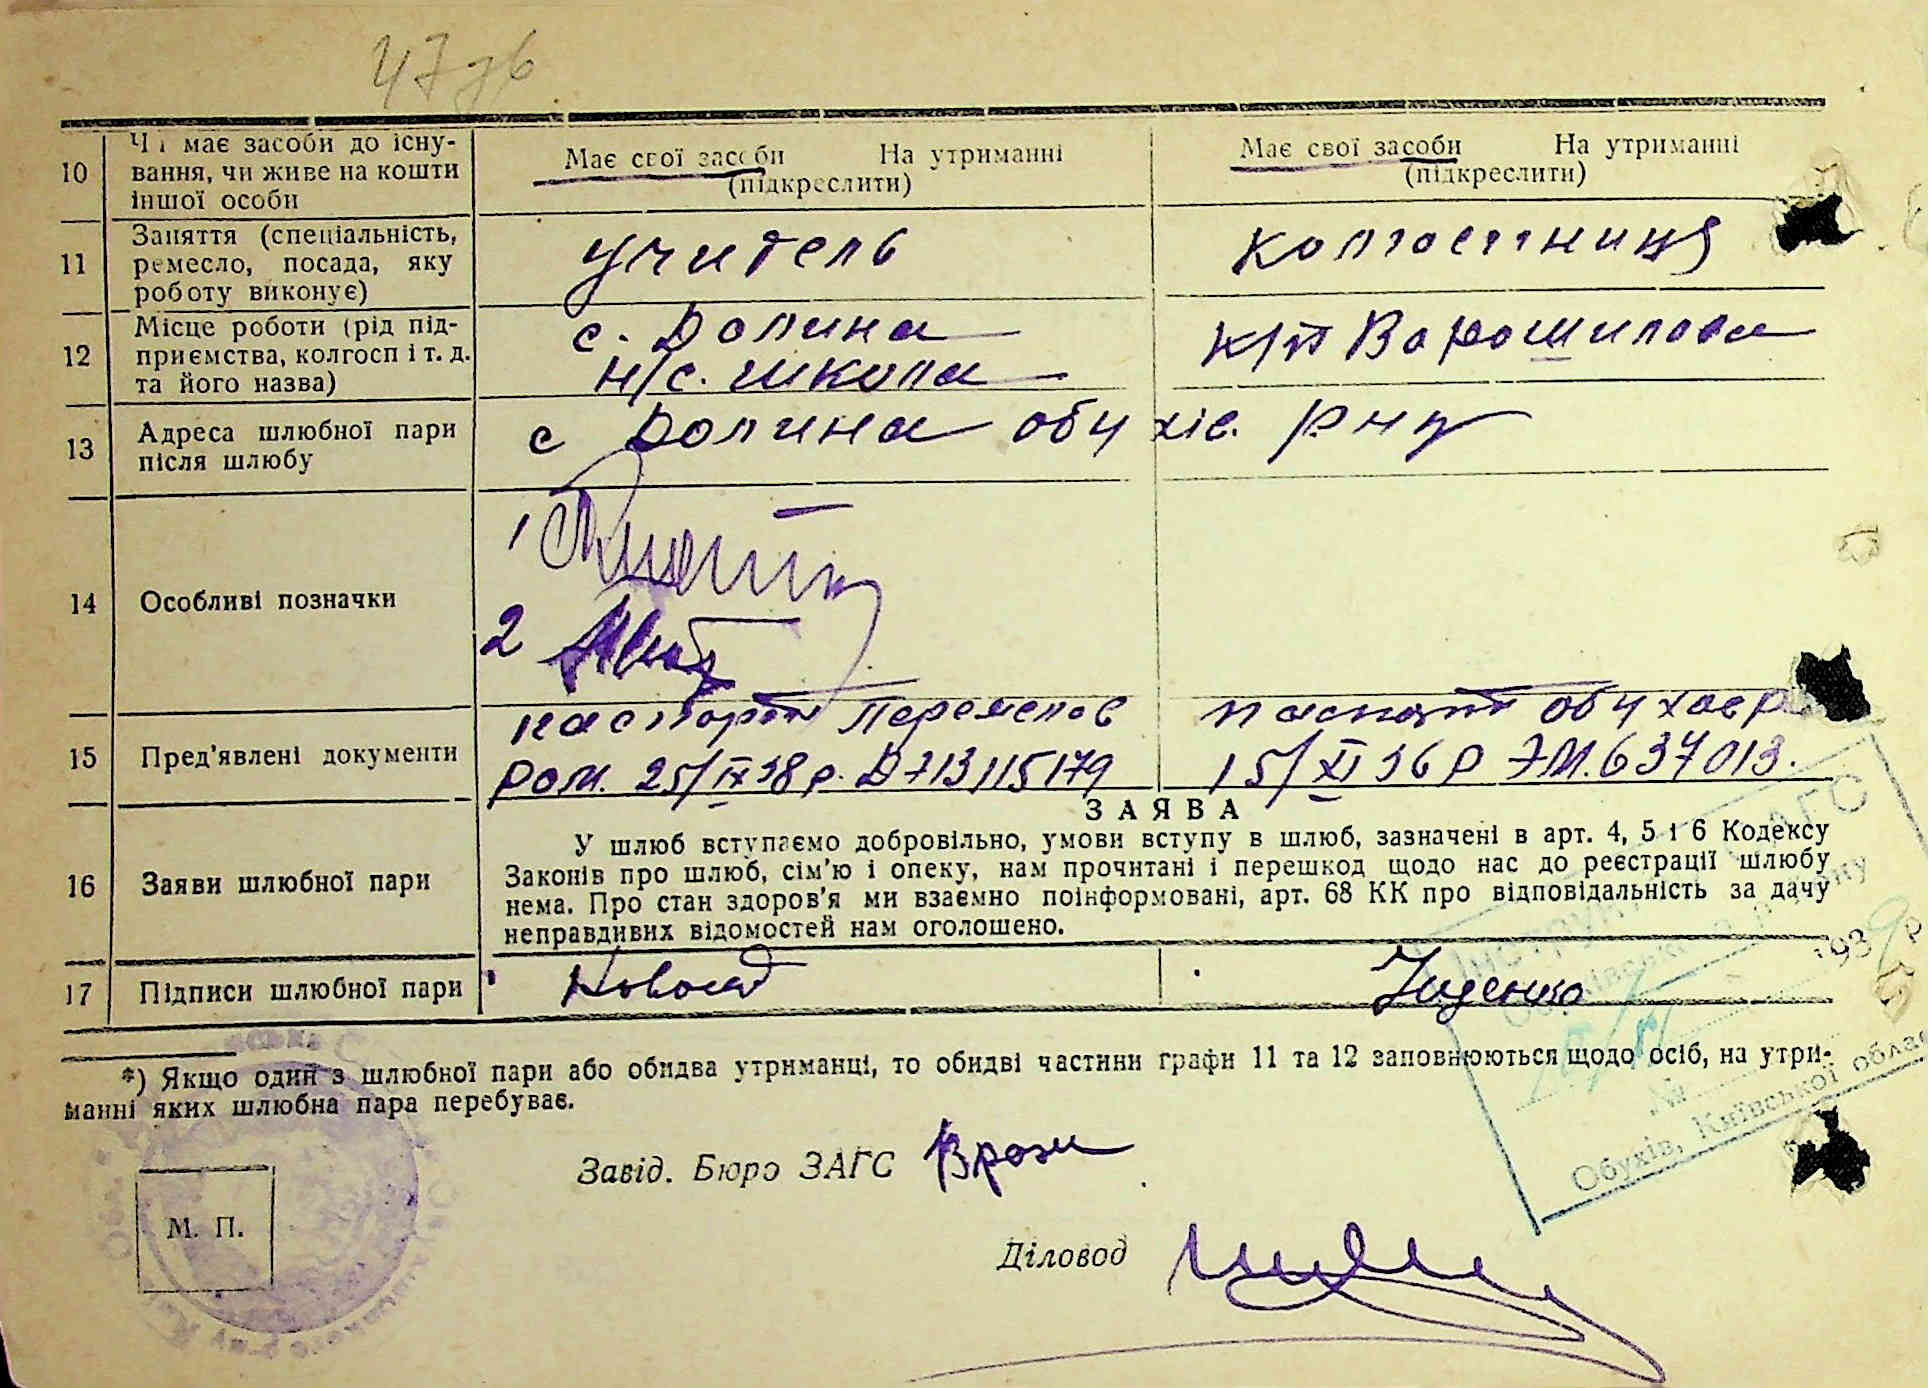 47 зв
10 Чи має засоби до існу-
вання, чи живе на кошти
іншої особи
Має свої засоби На утриманні
(підкреслити)
Має свої засоби На утриманні
(підкреслити)
11 Заняття (спеціальність,
ремесло, посада, яку
роботу виконує)
учитель
колгостниця
12 Місце роботи (рід під-
приємства, колгосп і т. д.
та його назва)
с. Долина
н/с. школа
к/п Ворошилова
13 Адреса шлюбної пари
після шлюбу
с Долина обухів. рну
14 Особливі позначки
1
2
15 Пред'явлені документи
паспорт
ром. 25/IX 38 р. 713115179
паспорт обухов р
15/XI 36 р ЭМ. 637013.
16 Заяви шлюбної пари
ЗАЯВА
У шлюб вступаємо добровільно, умови вступу в шлюб, зазначені в арт. 4, 5 і 6 Кодексу
Законів про шлюб, сім'ю і опеку, нам прочитані і перешкод щодо нас до реєстрації шлюбу
нема. Про стан здоров'я ми взаємно поінформовані, арт. 68 КК про відповідальність за дачу
неправдивих відомостей нам оголошено.
17 Підписи шлюбної пари
*) Якщо один з шлюбної пари або обидва утриманці, то обидві частини графи 11 та 12 заповнюються щодо осіб, на утри-
манні яких шлюбна пара перебуває.
ЗАГС
193 р
№
Обухів, Київської облас
Завід. Бюро ЗАГС
М. П.
Діловод